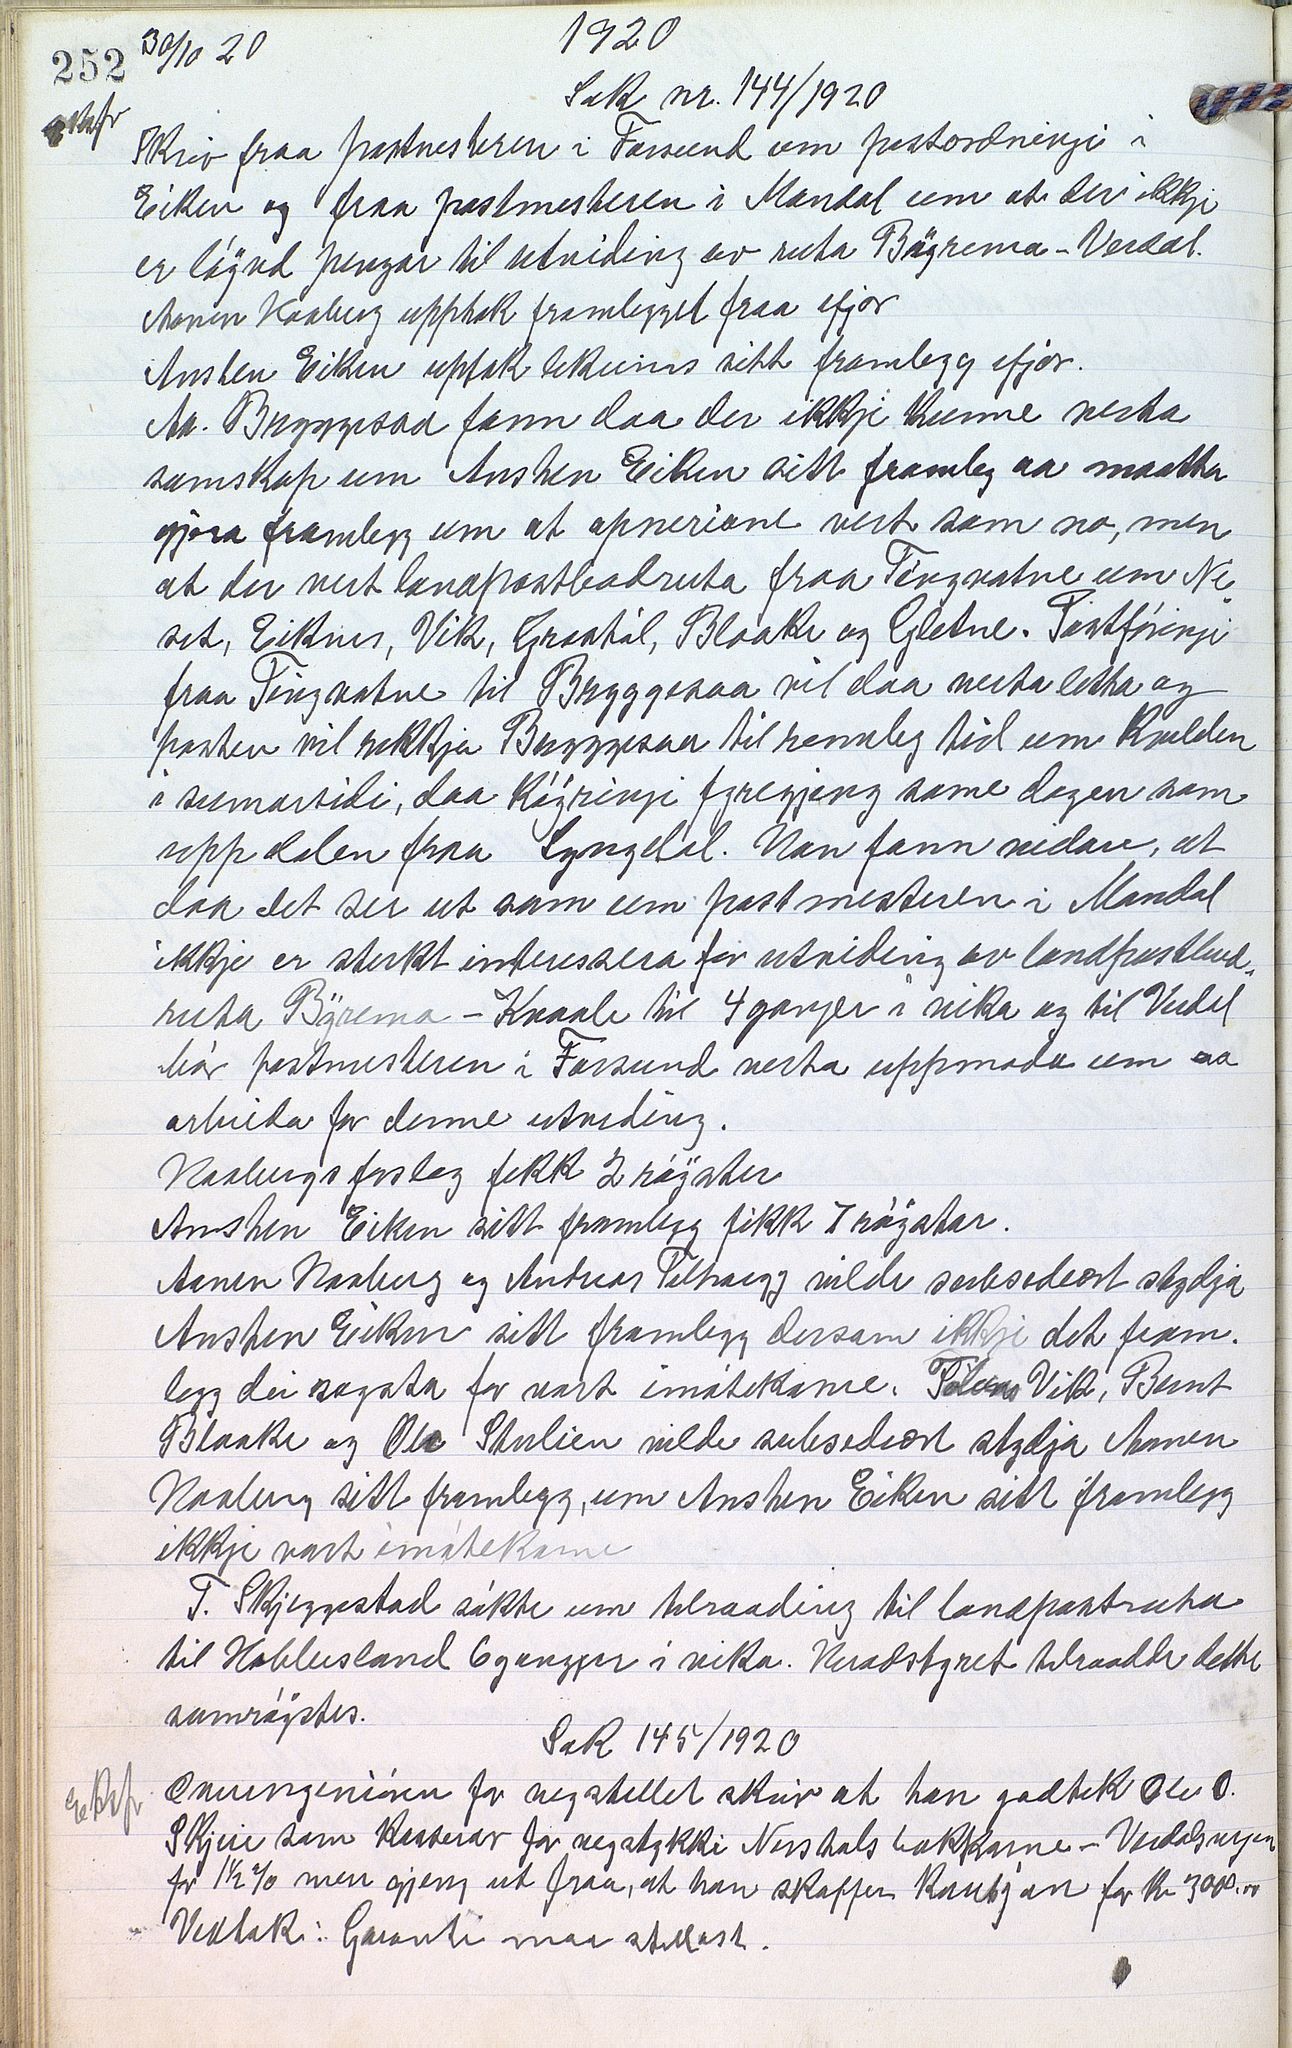 252 30/10 20
1920
Sak nr. 144/1920
Ekspfr
Skriv fraa postmesteren i Farsund um postordningi i
Eiken og fraa postmesteren i Mandal um at der ikkje
er löyvd pengar til utviding av ruta Böyrema - Verdal.
Aanen Haaberg upptok framlegget fraa ifjor
Ansten Eiken uptok likeeins sitt framlegg ifjor.
Aa. Bryggesaa fann daa der ikkje kunne verta
samskap um Ansten Eiken sitt framleg aa maatta
gjöra framlegg um at apneriane vert som no, men
at der vert landpostbodruta fraa Tingvatne um Ne-
set, Eiknes, Vik, Graatål, Blaake og Gletne. Postföringi
fraa Tingvatne til Bryggesaa vil daa verta letta og
posten vil rekkja Bryggesaa til rimeleg tid um kvelden
i sumartidi, daa köyringi fyregjeng same dagen som
upp dalen fraa Lyngdal. Han fann vidare, at
daa det ser ut som um postmesteren i Mandal
ikkje er sterkt interessera for utviding av landpostbud-
ruta Böyrema - Kvaale til 4 ganger i vika og til Verdal
bör postmesteren i Farsund verta uppmoda um aa
arbeida for denne utviding.
Haabergs forslag fekk 2 röyster
Ansten Eiken sitt framlegg fikk 7 röystar.
Aanen Haaberg og Andreas Teltvegg vilde subsediært stydja
Ansten Eiken sitt framlegg dersom ikkje det fram-
legg dei röysta for vart imötekome. Vik, Bernt
Blaake og Ole Stulien vilde subsediært stydja Aanen
Haaberg sitt framlegg, um Ansten Eiken sitt framlegg
ikkje vart imötekome
T. Skjeggestad sökte um tilraading til landpostruta
til Hobbesland 6 gangjer i vika. Heradstyret tilraadde dette
samröystes.
Sak 145/1920
Ekspfr
Overingeniören for vegstellet skriv at han godtek Ole O.
Skjeie som kasserar for vegstykki Nershalsbakkane - Verdalsvegen
for 1½ % men gjeng ut fraa, at han skaffer Kausjon for kr 3000.00
Vedtak: Garanti maa stellast.